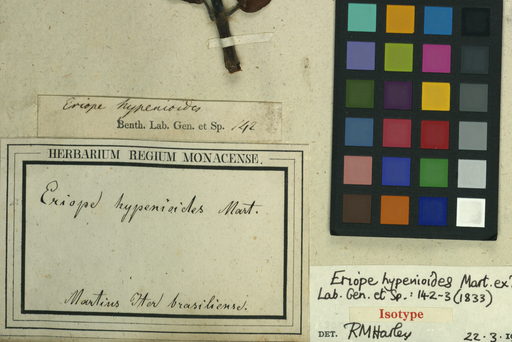 Eriope hypenioides
Benth. Lab. Gen. et Sp. 142
HERBARIUM REGIUM MONACENSE.
Eriope hypenioides Mart.
Martius Iter brasiliense.
Eriope hypenioides Mart. ex
Lab. Gen. et Sp.: 142-3 (1833)
Isotype
DET. RMHarley 22.3.